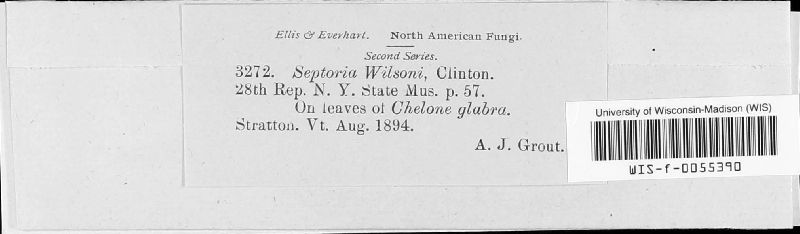 Ellis & Everhart. North American Fungi.
Second Series.
3272. Septoria Wilsoni, Clinton.
28th Rep. N. Y. State Mus. p. 57.
On leaves of Chelone glabra.
Stratton. Vt. Aug. 1894.
A. J. Grout.
University of Wisconsin-Madison (WIS)
WIS-f-0055390